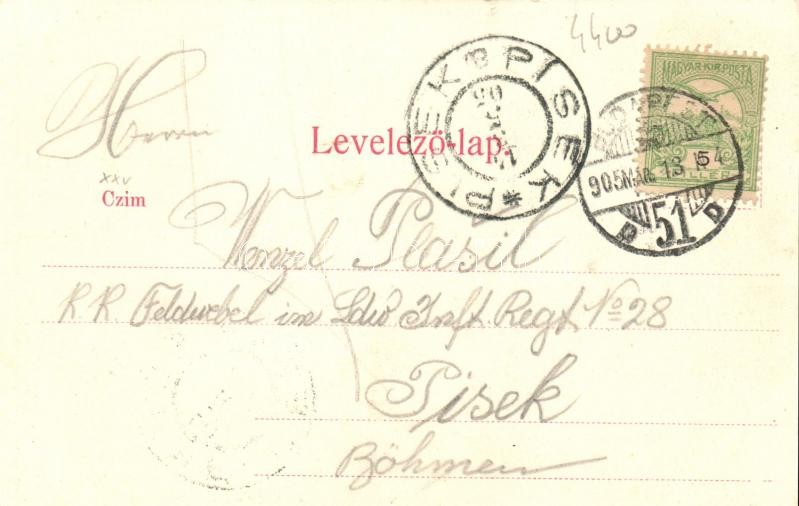 4400
MAGYAR KIR. POSTA
PISEK PISEK
Herrn
Levelező-lap.
905 MÁR. 13
51
D D
XXV
Czim
Wenzel Plasil
K. K. Feldwebel im Ldw Inft Regt No 28
Pisek
Böhmen